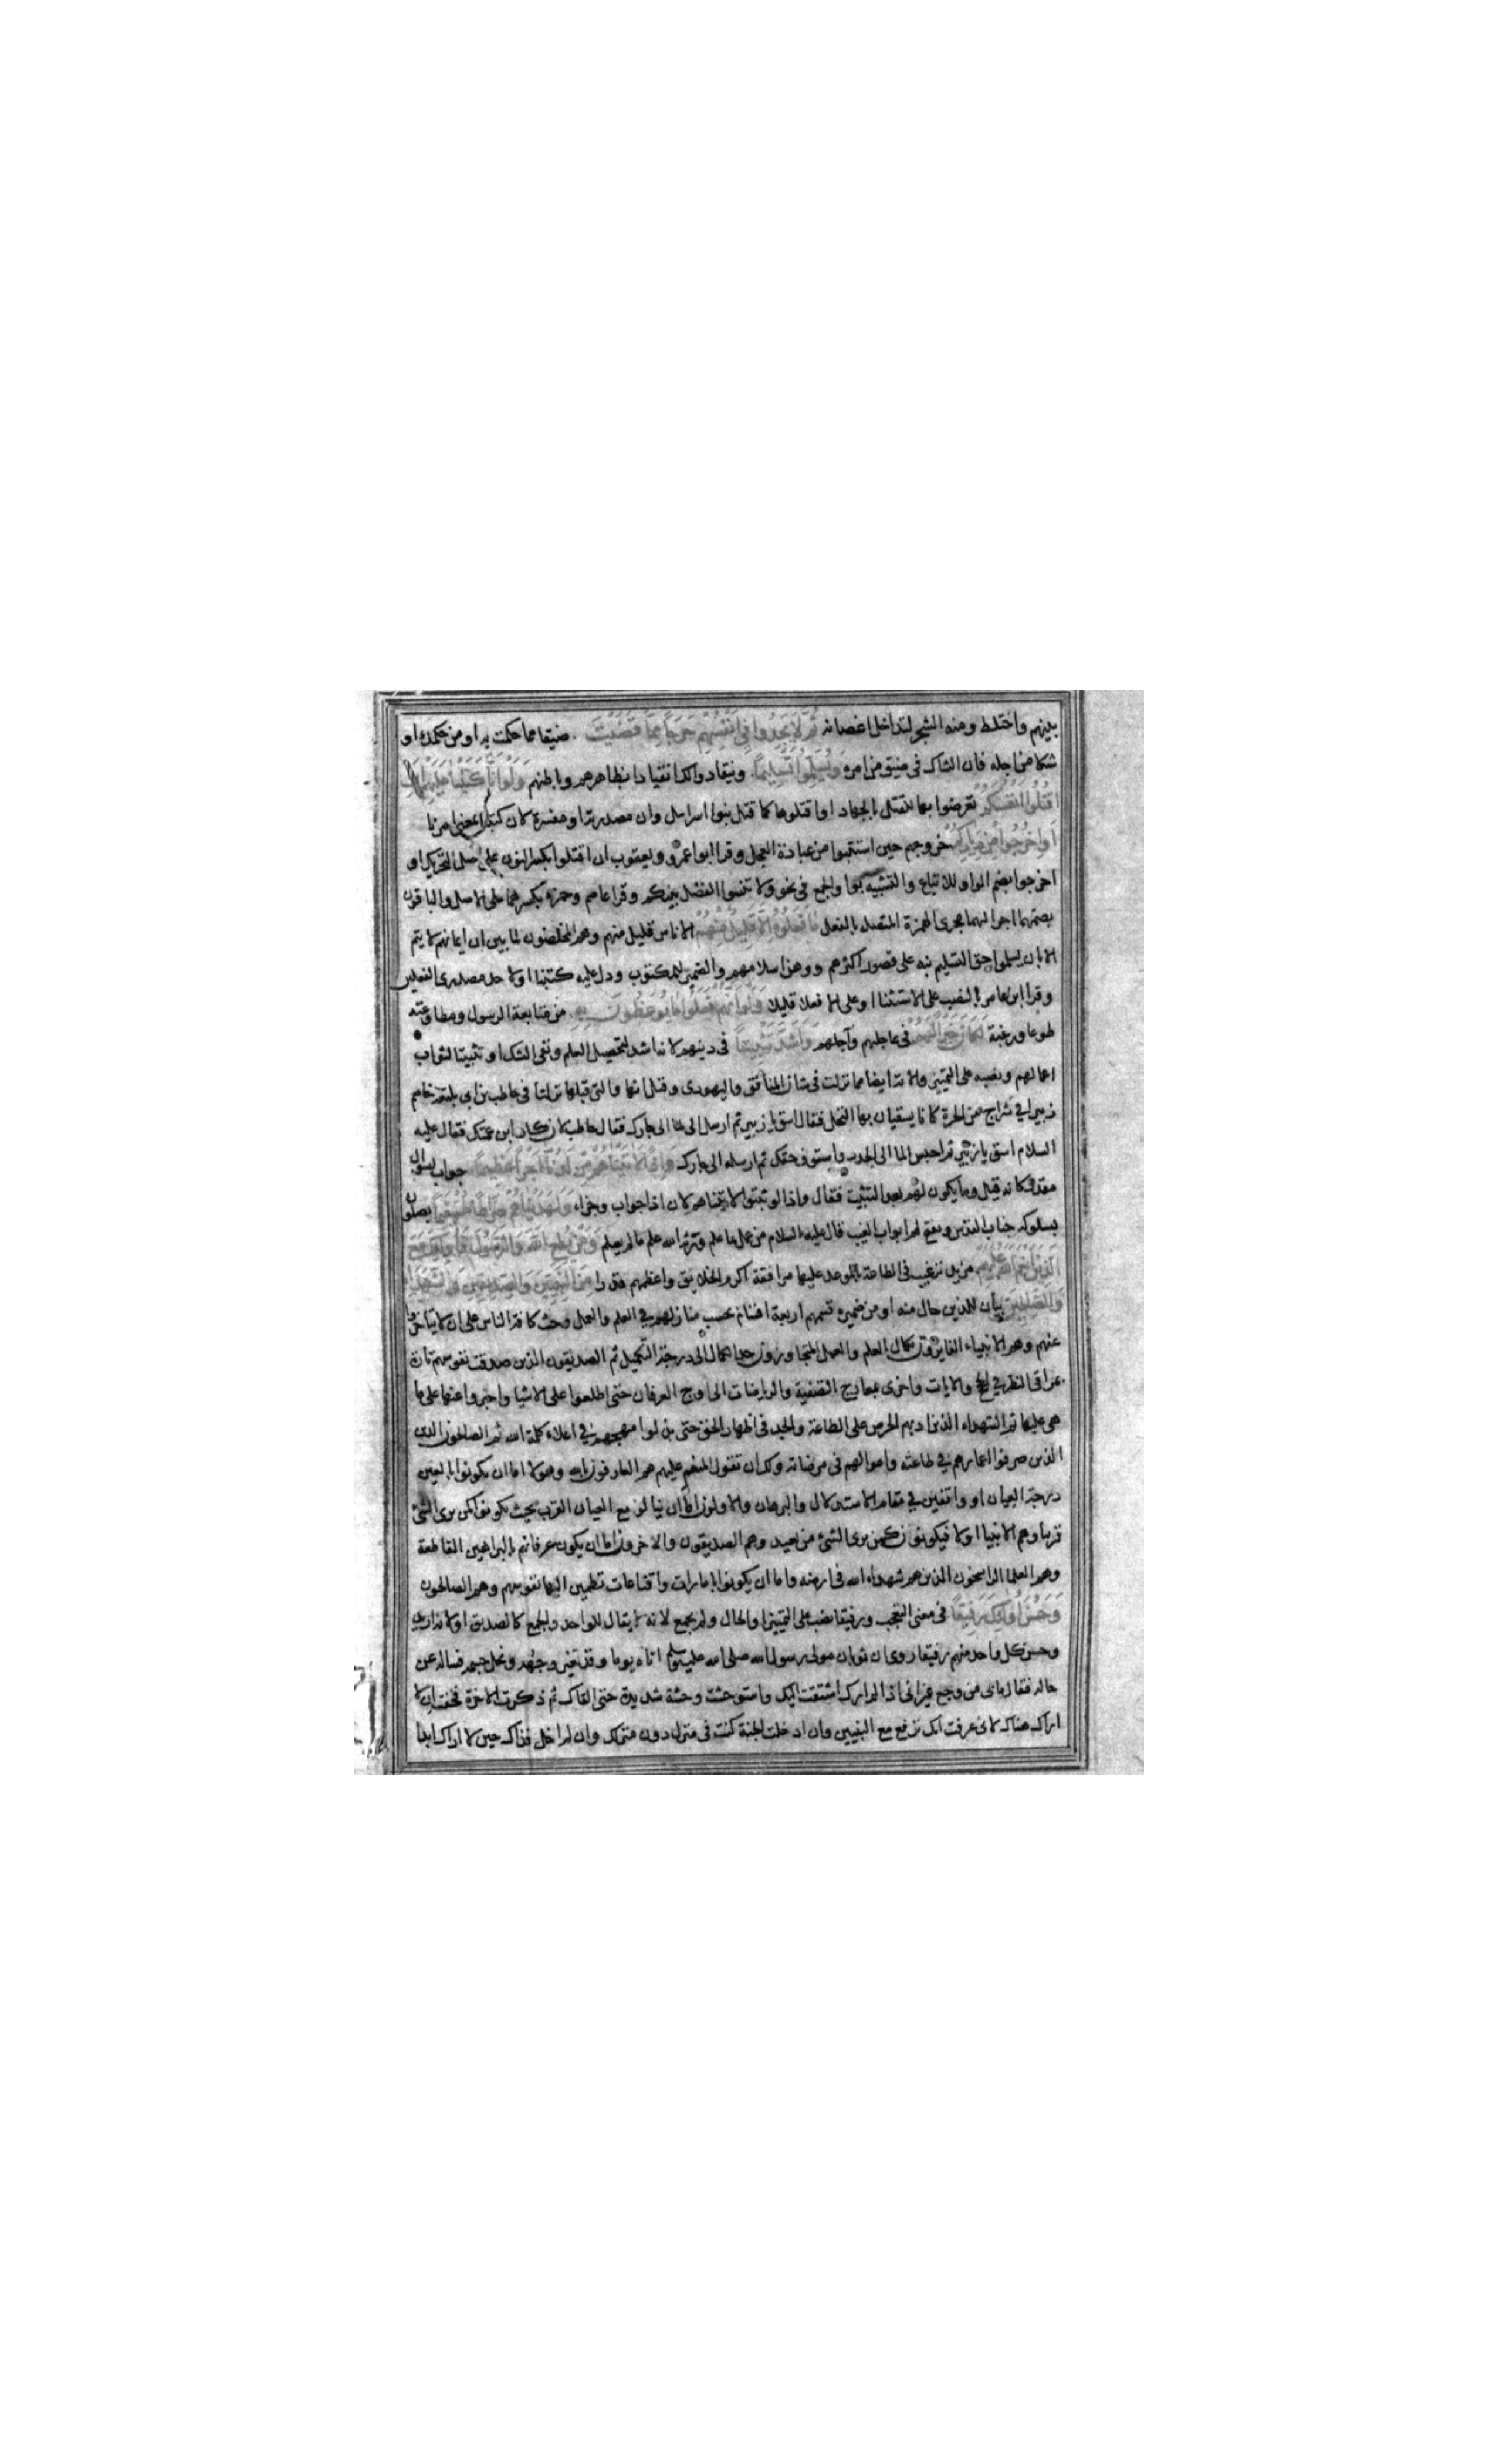 بينهم واختلط ومنه الشجر لتداخل اغصانه ثُمَّ لَا يَجِدُوا فِي أَنْفُسِهِمْ حَرَجًا مِمَّا قَضَيْتَ ضيقا مما حكمت به او من حكمك او
شكا من اجله فان الشاك فى ضيق من امره وَيُسَلِّمُوا تَسْلِيمًا وينقادوا لك انقيادا بظاهرهم وباطنهم وَلَوْ أَنَّا كَتَبْنَا عَلَيْهِمْ أَنِ
اقْتُلُوا أَنْفُسَكُمْ تعرضوا بها للقتل بالجهاد او اقتلوها كما قتل بنوا اسرايل وان مصدرية او مفسرة لان كتبنا بمعنى امرنا
أَوِ اخْرُجُوا مِنْ دِيَارِكُمْ خروجهم حين استتيبوا من عبادة العجل وقرا ابو عمرو ويعقوب ان اقتلوا بكسر النون على اصل التحريك او
اخرجوا بضم الواو للاتباع والتشبيه بواو الجمع فى نحو ولا تنسوا الفضل بينكم وقرا عاصم وحمزة بكسرهما على الاصل والباقون
بضمهما اجرا لهما مجرى الهمزة المتصلة بالفعل مَا فَعَلُوهُ إِلَّا قَلِيلٌ مِنْهُمْ الا ناس قليل منهم وهم المخلصون لما بين ان ايمانهم لا يتم
الا بان يسلموا حق التسليم نبه على قصور اكثرهم ووهن اسلامهم والضمير للمكتوب ودل عليه كتبنا او لاحد مصدرى الفعلين
وقرا ابن عامر بالنصب على الاستثنا او على الا فعلا قليلا وَلَوْ أَنَّهُمْ فَعَلُوا مَا يُوعَظُونَ بِهِ من متابعة الرسول ومطاوعته
طوعا ورغبة لَكَانَ خَيْرًا لَهُمْ فى عاجلهم وآجلهم وَأَشَدَّ تَثْبِيتًا فى دينهم لانه اشد لتحصيل العلم ونفى الشك او تثبيتا لثواب
اعمالهم ونصبه على التمييز والاية ايضا مما نزلت فى شان المنافق واليهودى وقيل انها والتى قبلها نزلتا فى حاطب بن ابى بلتعة خاصم
زبيرا في شراج من الحرة كانا يسقيان بها النخل فقال اسق يا زبير ثم ارسل الما الى جارك فقال حاطب لان كان ابن عمتك فقال عليه
السلام اسق يا زبير ثم احبس الما الى الجدر واستوف حقك ثم ارسله الى جارك وَإِذًا لَآتَيْنَاهُمْ مِنْ لَدُنَّا أَجْرًا عَظِيمًا جواب لسوال
مقدر كانه قيل وما يكون لهم بعد التثبيت فقال واذا لو تثبتوا لاتيناهم لان اذا جواب وجزاء وَلَهَدَيْنَاهُمْ صِرَاطًا مُسْتَقِيمًا يصلون
بسلوكه جناب القدس ويفتح لهم ابواب الغيب قال عليه السلام من عمل بما علم ورثه الله علم ما لم يعلم وَمَنْ يُطِعِ اللَّهَ وَالرَّسُولَ فَأُولَئِكَ مَعَ
الَّذِينَ أَنْعَمَ اللَّهُ عَلَيْهِمْ مزيد ترغيب فى الطاعة بالوعد عليها مرافقة اكرم الخلايق واعظمهم قدرا مِنَ النَّبِيِّينَ وَالصِّدِّيقِينَ وَالشُّهَدَاءِ
وَالصَّالِحِينَ بيان للذين حال منه او من ضميره قسمهم اربعة اقسام بحسب منازلهم في العلم والعمل وحث كافة الناس على ان لا يتاخروا
عنهم وهم الانبياء الفايزون بكمال العلم والعمل المتجاوزون حد الكمال الى درجة التكميل ثم الصديقون الذين صدقت نفوسهم تارة
بمراقى النظر في الحجج والايات واخرى بمعارج التصفية والرياضات الى اوج العرفان حتى اطلعوا على الاشيا واخبروا عنها على ما
هى عليها ثم الشهداء الذين ادى بهم الحرص على الطاعة والجد فى اظهار الحق حتى بذلوا مهجهم في اعلاء كلمة الله ثم الصالحون الذين
الذين صرفوا اعمارهم في طاعته واموالهم فى مرضاته ولك ان تقول المنعم عليهم هم العارفون بالله وهولا اما ان يكونوا بالغين
درجة العيان او واقفين في مقام الاستدلال والبرهان والاولون اما ان ينالوا مع العيان القرب بحيث يكونون كمن يرى الشئ
قريبا وهم الانبيا او لا فيكونون كمن يرى الشئ من بعيد وهم الصديقون والاخرون اما ان يكون عرفانهم بالبراهين القاطعة
وهم العلما الراسخون الذين هم شهداء الله فى ارضه واما ان يكونوا بامارات واقناعات تطمين اليها نفوسهم وهم الصالحون
وَحَسُنَ أُولَئِكَ رَفِيقًا فى معنى التعجب ورفيقا نصب على التمييز او الحال ولم يجمع لانه يقال للواحد والجمع كالصديق او لانه اريد
وحسن كل واحد منهم رفيقا روى ان ثوبان مولى رسول الله صلى الله عليه وسلم اتاه يوما وقد تغير وجهه ونحل جسمه فساله عن
حاله فقال ما بى من وجع غير انى اذا لم ارك اشتقت اليك واستوحشت وحشة شديدة حتى القاك ثم ذكرت الاخرة فخفت ان لا
اراك هناك لانى عرفت انك ترفع مع النبيين وان ادخلت الجنة كنت فى منزل دون منزلك وان لم ادخل فذاك حين لا اراك ابدا